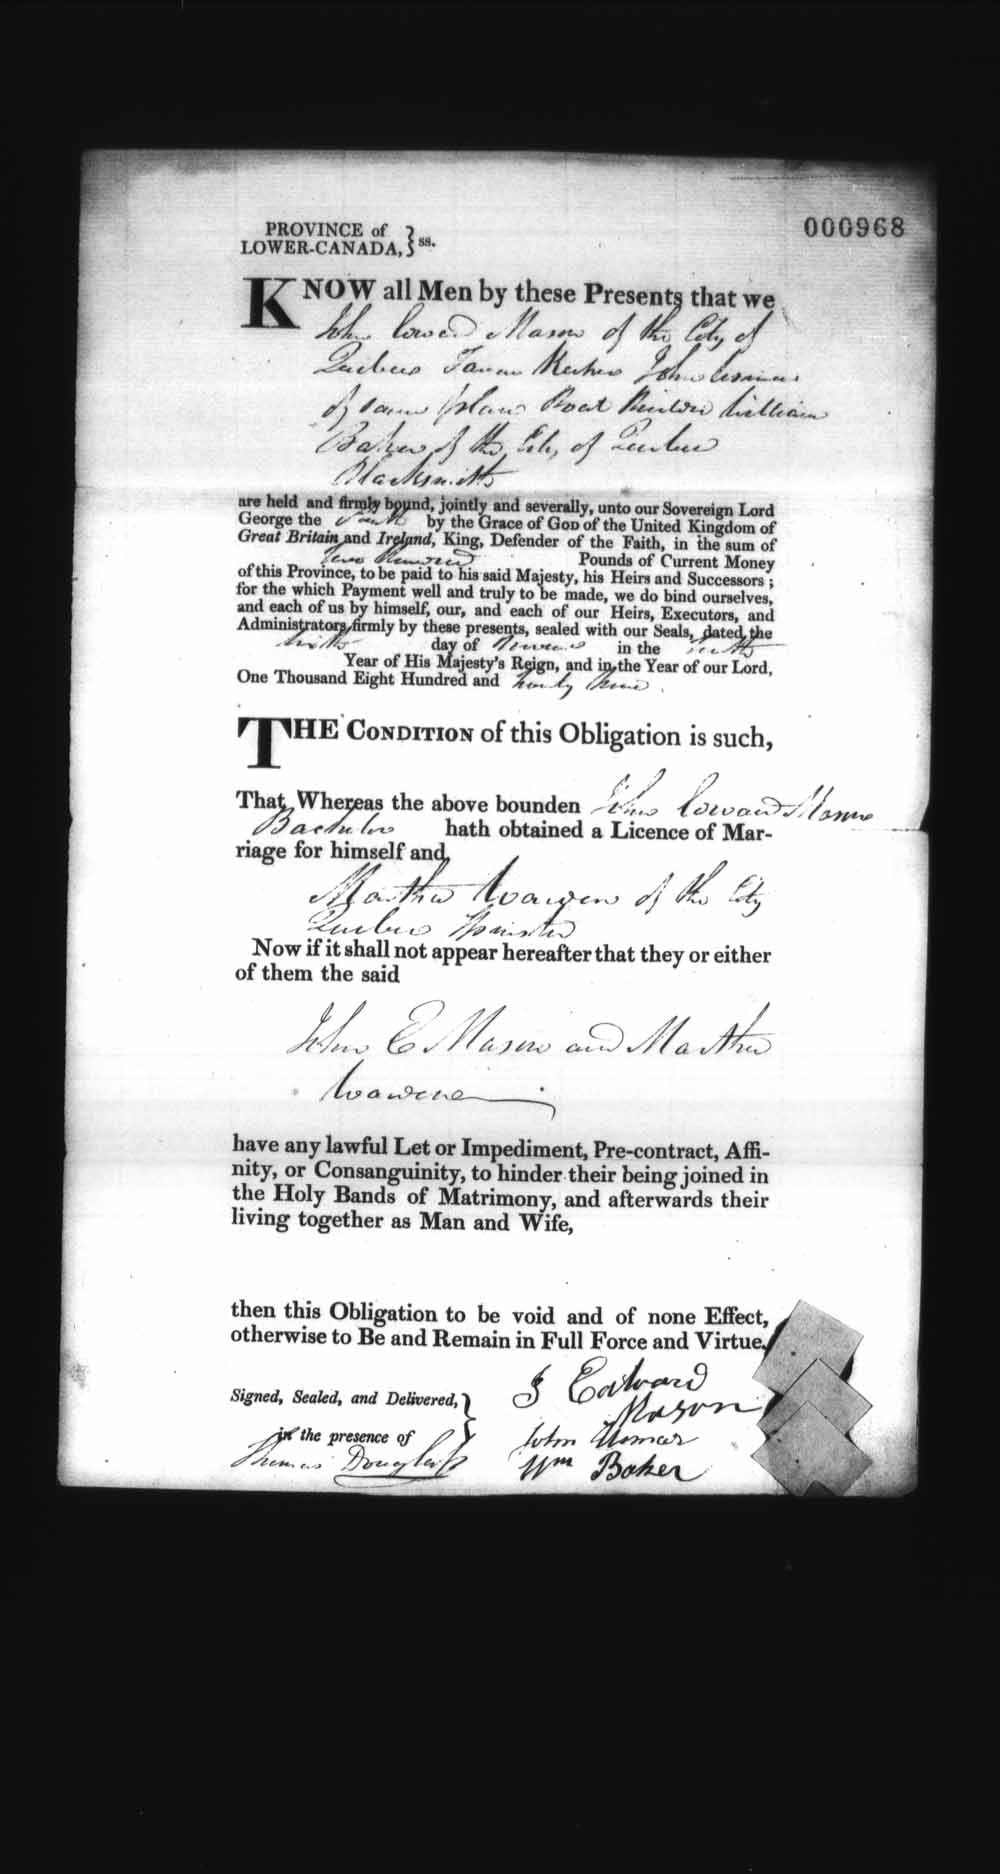 PROVINCE of
LOWER-CANADA, } ss.
000968
KNOW all Men by these Presents that we
John Edward Mason of the City of
Quebec Tavern Keeper John
of same place Boat Builder William
Baker of the City of Quebec
Blacksmith
are held and firmly bound, jointly and severally, unto our Sovereign Lord
George the Fourth by the Grace of GOD of the United Kingdom of
Great Britain and Ireland, King, Defender of the Faith, in the sum of
Two Hundred Pounds of Current Money
of this Province, to be paid to his said Majesty, his Heirs and Successors ;
for the which Payment well and truly to be made, we do bind ourselves,
and each of us by himself, our, and each of our Heirs, Executors, and
Administrators, firmly by these presents, sealed with our Seals, dated the
day of in the
Year of His Majesty's Reign, and in the Year of our Lord,
One Thousand Eight Hundred and twenty
THE CONDITION of this Obligation is such,
That Whereas the above bounden John Edward Mason
Bachelor hath obtained a Licence of Mar-
riage for himself and
Martha of the City
Quebec Spinster
Now if it shall not appear hereafter that they or either
of them the said
John E Mason and Martha
have any lawful Let or Impediment, Pre-contract, Affi-
nity, or Consanguinity, to hinder their being joined in
the Holy Bands of Matrimony, and afterwards their
living together as Man and Wife,
then this Obligation to be void and of none Effect,
otherwise to Be and Remain in Full Force and Virtue.
J Edward
Mason
Signed, Sealed, and Delivered, }
in the presence of
John
Thomas Douglass
Wm Baker